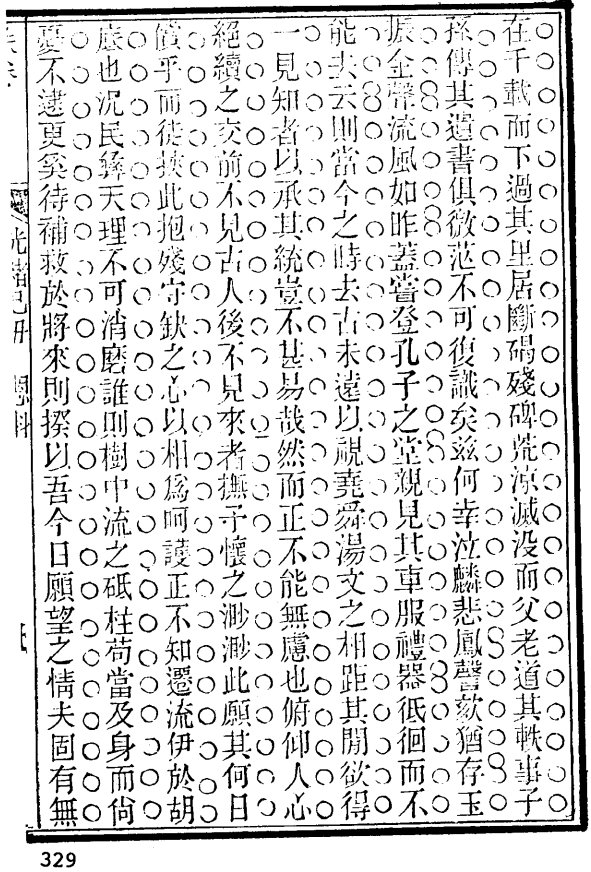 在千載而下過其里居斷碣殘碑荒涼滅没而父老道其軼事子
孫傳其遺書俱微茫不可復識矣兹何幸泣麟悲鳳謦欬猶存玉
振金聲流風如昨蓋嘗登孔子之堂親見其車服禮器低徊而不
能去云則當今之時去古未遠以視堯舜湯文之相距其閒欲得
一見知者以承其統豈不甚易哉然而正不能無慮也俯仰人心
絕續之交前不見古人後不見來者撫予懷之渺渺此願其何日
償乎而徒挾此抱殘守缺之心以相爲呵護正不知遷流伊於胡
底也况民彝天理不可消磨誰則樹中流之砥柱苟當及身而尙
憂不逮更奚待補救於將來則揆以吾今日願望之情夫固有無
光緒己卯 恩科
329